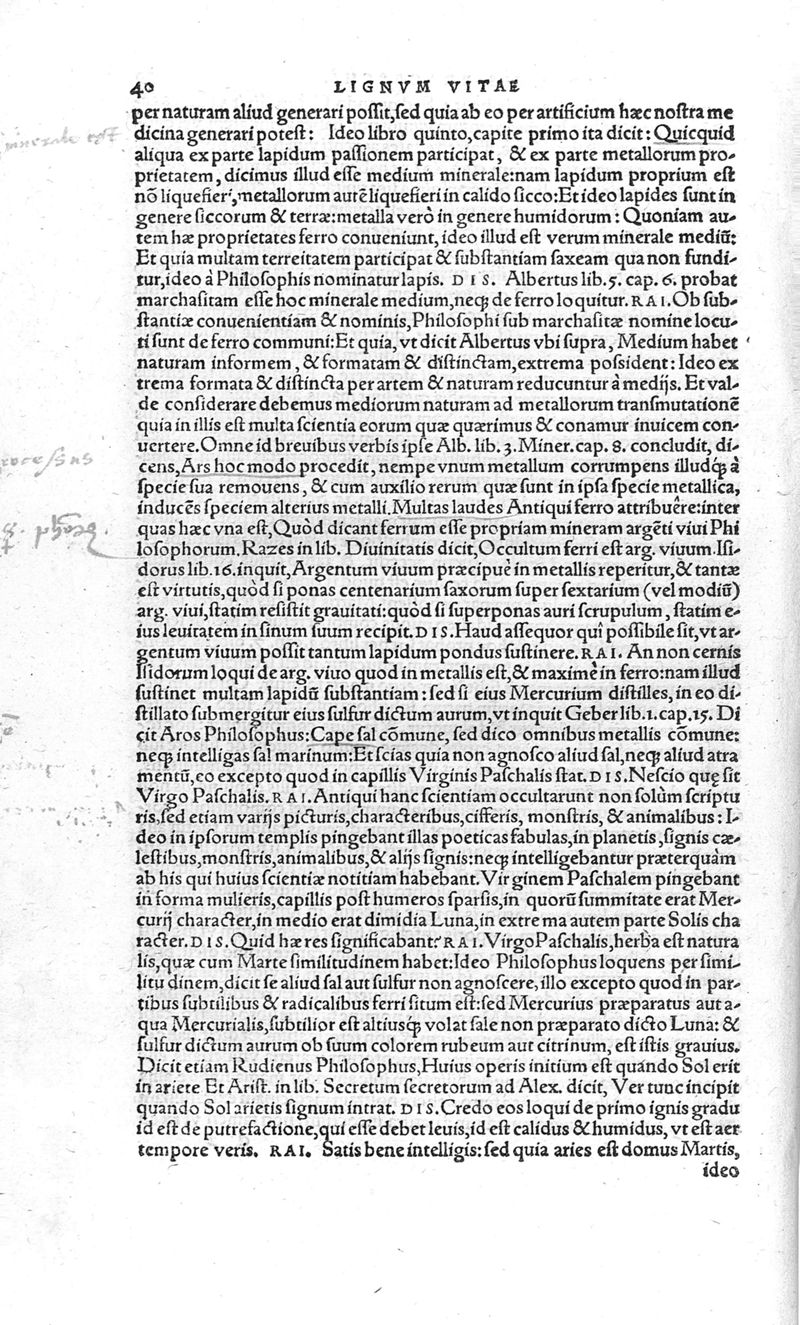 40 LIGNVM VITAE
per naturam aliud generari possit, sed quia ab eo per artificium hæc nostra me
dicina generari potest: Ideo libro quinto, capite primo ita dicit: Quicquid
aliqua ex parte lapidum passionem participat, & ex parte metallorum pro-
prietatem, dicimus illud esse medium minerale: nam lapidum proprium est
nō liquefieri, metallorum autē liquefieri in calido sicco: Et ideo lapides sunt in
genere siccorum & terræ: metalla verò in genere humidorum: Quoniam au-
tem hæ proprietates ferro conueniunt, ideo illud est verum minerale mediū:
Et quia multam terreitatem participat & substantiam saxeam qua non fundi-
tur, ideo à Philosophis nominatur lapis. DIS. Albertus lib. 5. cap. 6. probat
marchasitam esse hoc minerale medium, neq; de ferro loquitur. RAI. Ob sub-
stantiæ conuenientiam & nominis, Philosophi sub marchasitæ nomine locu-
ti sunt de ferro communi: Et quia, vt dicit Albertus vbi supra, Medium habet
naturam informem, & formatam & distinctam, extrema possident: Ideo ex
trema formata & distincta per artem & naturam reducuntur à medijs. Et val-
de considerare debemus mediorum naturam ad metallorum transmutationē
quia in illis est multa scientia eorum quæ quærimus & conamur inuicem con-
uertere. Omne id breuibus verbis ipse Alb. lib. 3. Miner. cap. 8. concludit, di-
cens, Ars hoc modo procedit, nempe vnum metallum corrumpens illudq; à
specie sua remouens, & cum auxilio rerum quæ sunt in ipsa specie metallica,
inducēs speciem alterius metalli. Multas laudes Antiqui ferro attribuêre: inter
quas hæc vna est, Quòd dicant ferrum esse propriam mineram argēti viui Phi
losophorum. Razes in lib. Diuinitatis dicit, Occultum ferri est arg. viuum. Isi-
dorus lib. 16. inquit, Argentum viuum præcipuè in metallis reperitur, & tantæ
est virtutis, quòd si ponas centenarium saxorum super sextarium (vel modiū)
arg. viui, statim resistit grauitati: quòd si superponas auri scrupulum, statim e-
ius leuitatem in sinum suum recipit. DIS. Haud assequor quî possibile sit, vt ar-
gentum viuum possit tantum lapidum pondus sustinere. RAI. An non cernis
Isidorum loqui de arg. viuo quod in metallis est, & maximè in ferro: nam illud
sustinet multam lapidū substantiam: sed si eius Mercurium distilles, in eo di-
stillato submergitur eius sulfur dictum aurum, vt inquit Geber lib. 1. cap. 15. Di
cit Aros Philosophus: Cape sal cōmune, sed dico omnibus metallis cōmune:
neq; intelligas sal marinum: Et scias quia non agnosco aliud sal, neq; aliud atra
mentū, eo excepto quod in capillis Virginis Paschalis stat. DIS. Nescio quę sit
Virgo Paschalis. RAI. Antiqui hanc scientiam occultarunt non solùm scriptu
ris, sed etiam varijs picturis, characteribus, cifferis, monstris, & animalibus: I-
deo in ipsorum templis pingebant illas poeticas fabulas, in planetis, signis cæ-
lestibus, monstris, animalibus, & alijs signis: neq; intelligebantur præterquàm
ab his qui huius scientiæ notitiam habebant. Virginem Paschalem pingebant
in forma mulieris, capillis post humeros sparsis, in quorū summitate erat Mer-
curij character, in medio erat dimidia Luna, in extrema autem parte Solis cha
racter. DIS. Quid hæ res significabant? RAI. Virgo Paschalis, herba est natura
lis, quæ cum Marte similitudinem habet: Ideo Philosophus loquens per simi-
litudinem, dicit se aliud sal aut sulfur non agnoscere, illo excepto quod in par-
tibus subtilibus & radicalibus ferri situm est: sed Mercurius præparatus aut a-
qua Mercurialis, subtilior est altiusq; volat sale non præparato dicto Luna: &
sulfur dictum aurum ob suum colorem rubeum aut citrinum, est istis grauius.
Dicit etiam Rudienus Philosophus, Huius operis initium est quando Sol erit
in ariete Et Arist. in lib. Secretum secretorum ad Alex. dicit, Ver tunc incipit
quando Sol arietis signum intrat. DIS. Credo eos loqui de primo ignis gradu
id est de putrefactione, qui esse debet leuis, id est calidus & humidus, vt est aer
tempore veris. RAI. Satis bene intelligis: sed quia aries est domus Martis,
ideo